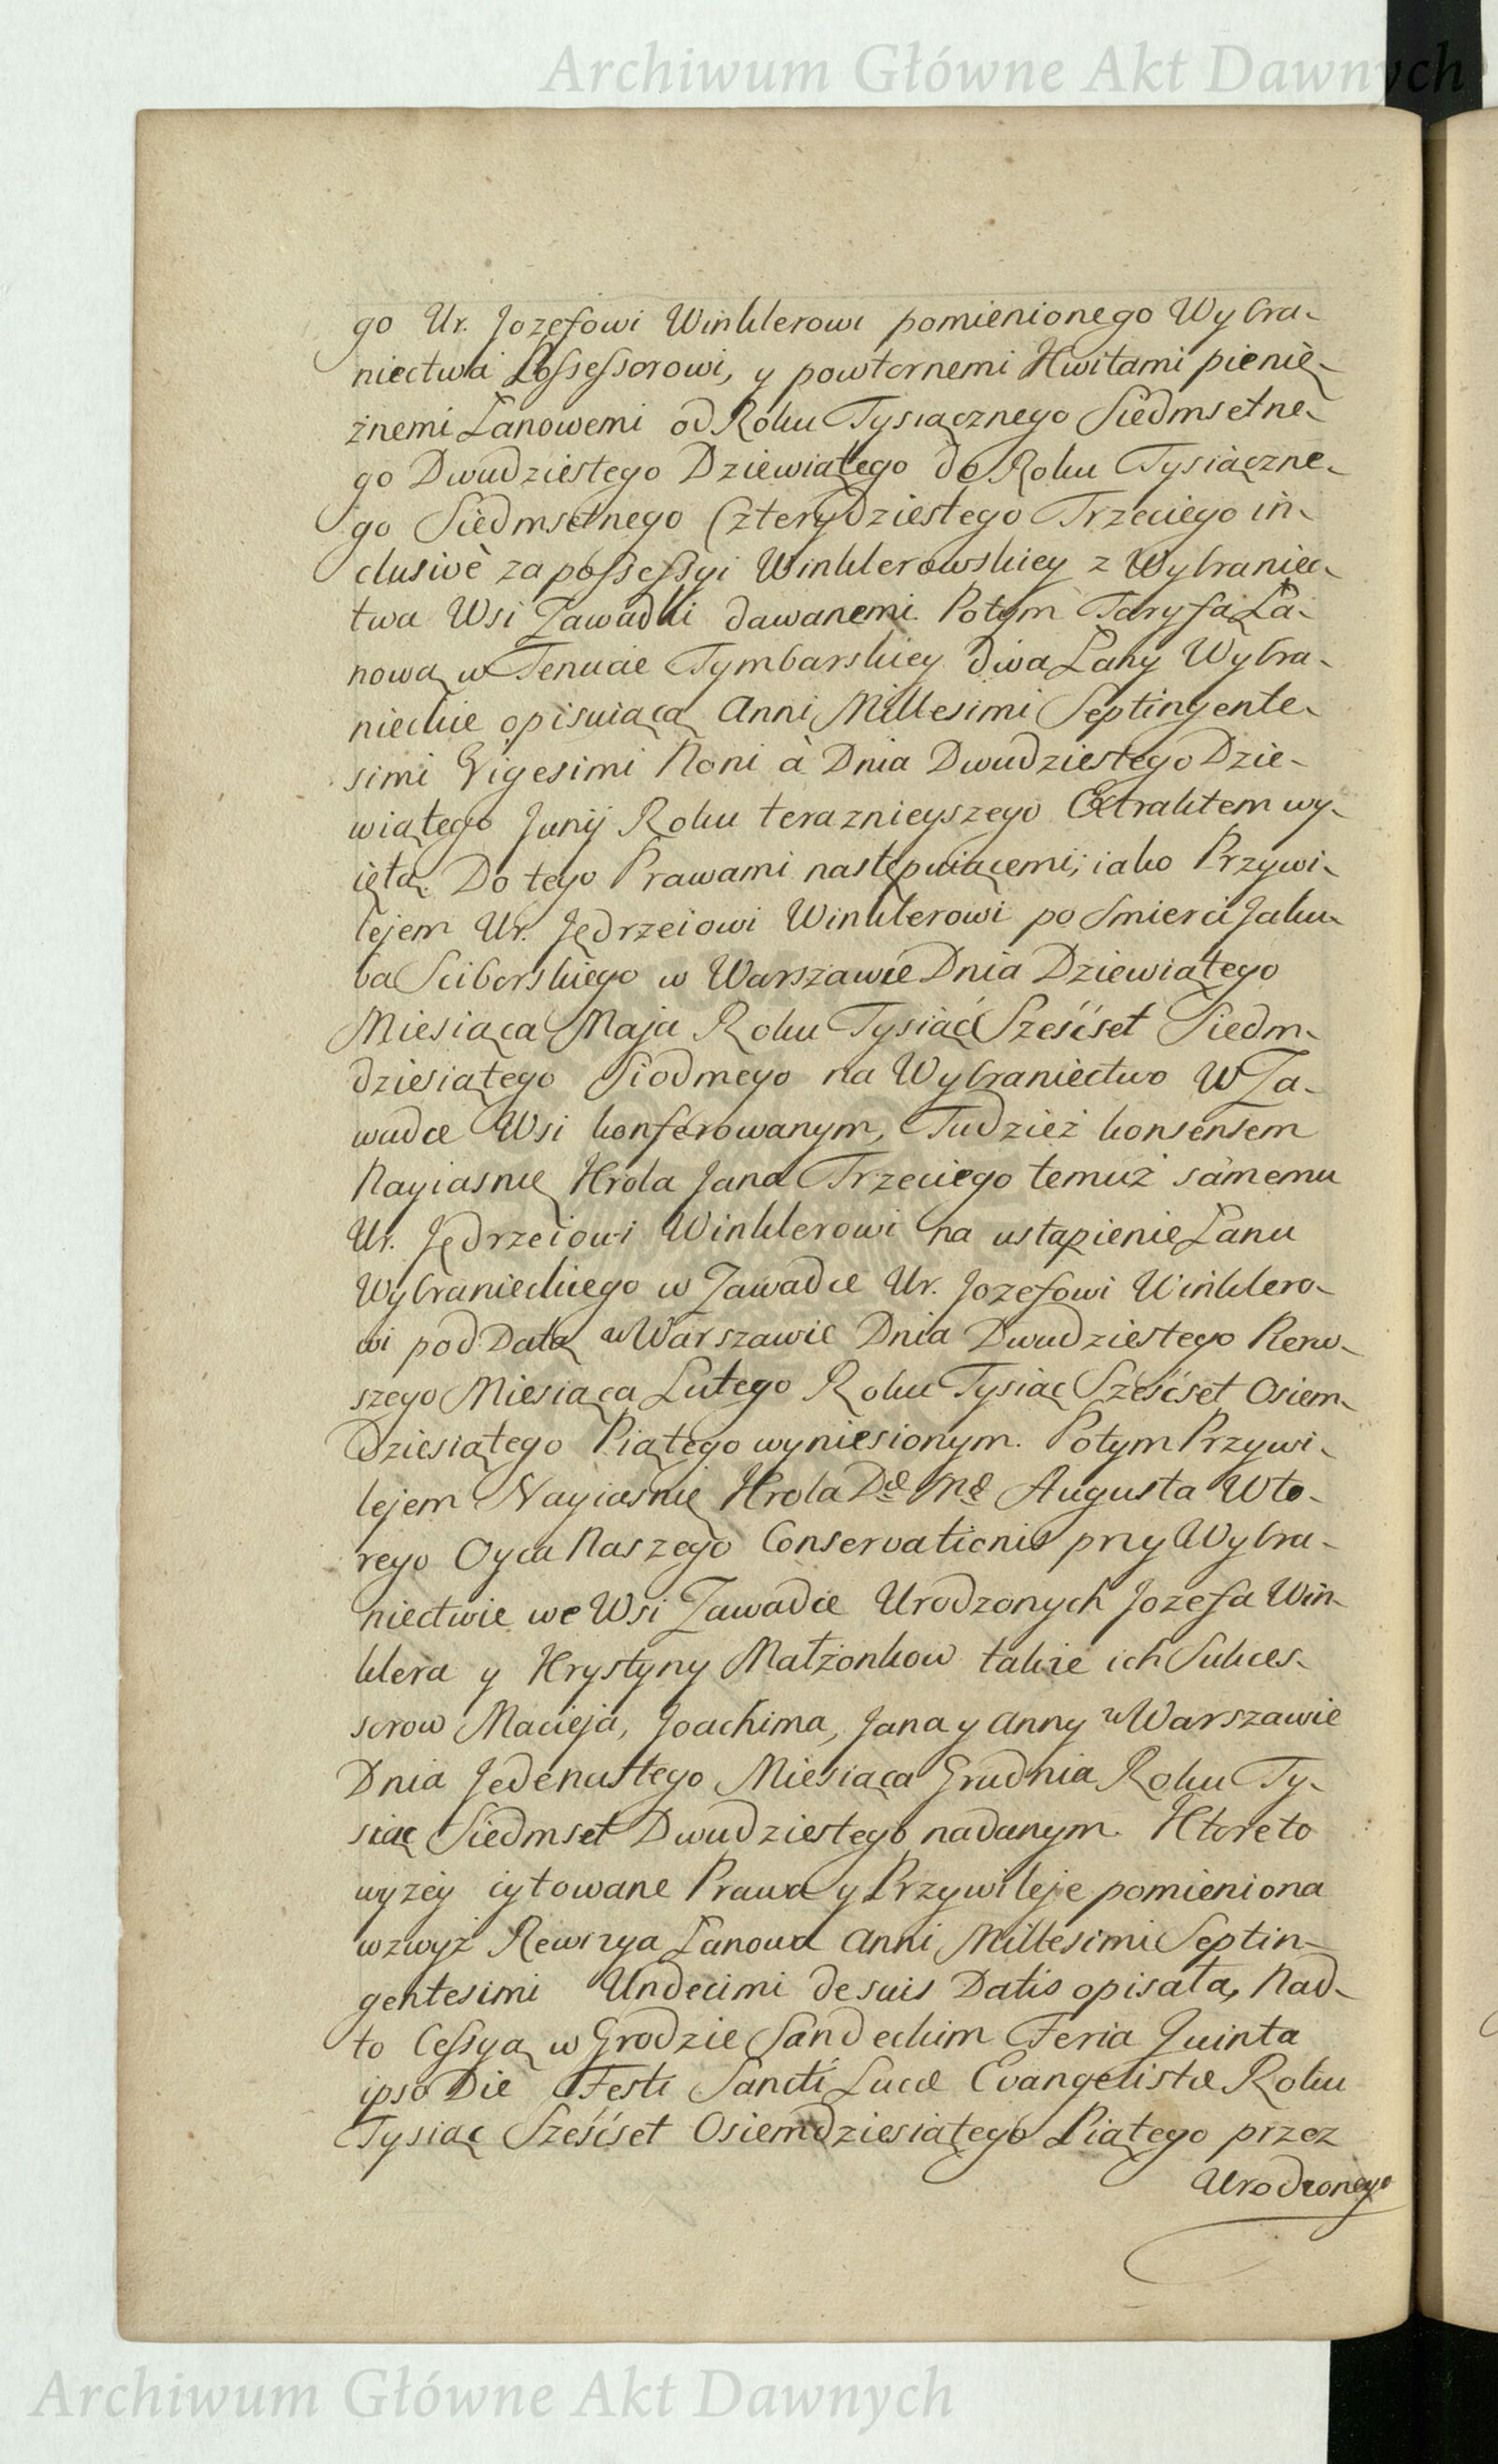 Archiwum Główne Akt Dawnych
go Ur. Jozefowi Winklerowi pomienionego Wybra-
niectwa Possessorowi, y powtornemi Kwitami pienię-
żnemi Łanowemi od Roku Tysiącznego Siedmsetne-
go Dwudziestego Dziewiątego do Roku Tysiączne-
go Siedmsetnego Czterydziestego Trzeciego in-
clusivè za possessyi Winklerowskiey z Wybraniec-
twa Wsi Zawadki dawanemi. Potym Taryfą Ła-
nową w Tenucie Tymbarskiey dwa Łany Wybra-
nieckie opisuiącą Anni Millesimi Septingente-
simi Vigesimi Noni à Dnia Dwudziestego Dzie-
wiątego Junij Roku teraznieyszego Extraktem wy-
iętą. Do tego Prawami następuiącemi; iako Przywi-
lejem Ur. Jędrzeiowi Winklerowi po smierci Jaku-
ba Sciborskiego w Warszawie Dnia Dziewiątego
Miesiąca Maja Roku Tysiąć Sześćset Siedm-
dziesiątego Siodmego na Wybraniectwo w Za-
wadce Wsi konferowanym, Tudzież konsensem
Nayiasnię Krola Jana Trzeciego temuż samemu
Ur. Jędrzeiowi Winklerowi na ustąpienie Łanu
Wybranieckiego w Zawadce Ur. Jozefowi Winklero-
wi pod Datą w Warszawie Dnia Dwudziestego Pierw-
szego Miesiąca Lutego Roku Tysiąc Sześćset Osiem-
dziesiątego Piątego wyniesionym. Potym Przywi-
lejem Nayiasnię Krola Augusta Wto-
rego Oyca Naszego Conservationis przy Wybra-
niectwie we Wsi Zawadce Urodzonych Jozefa Win-
klera y Krystyny Małżonkow także ich Sukces-
sorow Macieja, Joachima, Jana y Anny w Warszawie
Dnia Jedenastego Miesiąca Grudnia Roku Ty-
siąc Siedmset Dwudziestego nadanym. Ktore to
wyzey cytowane Prawa y Przywileje pomieniona
wzwyż Rewizya Łanowa Anni Millesimi Septin-
gentesimi Undecimi de suis Datis opisała, Nad-
to Cessyą w Grodzie Sandeckim Feria Quinta
ipso Die Festi Sancti Lucæ Evangelistæ Roku
Tysiąc Sześćset Osiemdziesiątego Piątego przez
Urodzonego
Archiwum Główne Akt Dawnych